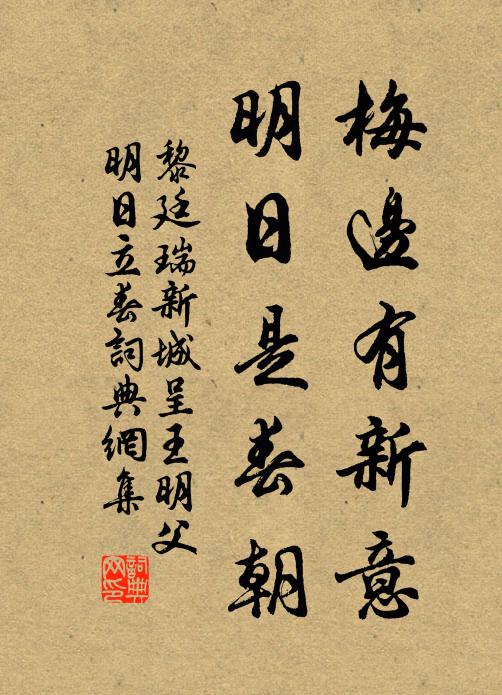 梅邊有新意
明日是春朝
黎廷瑞新城呈王明父
明日立春詞典網集
詞典網印